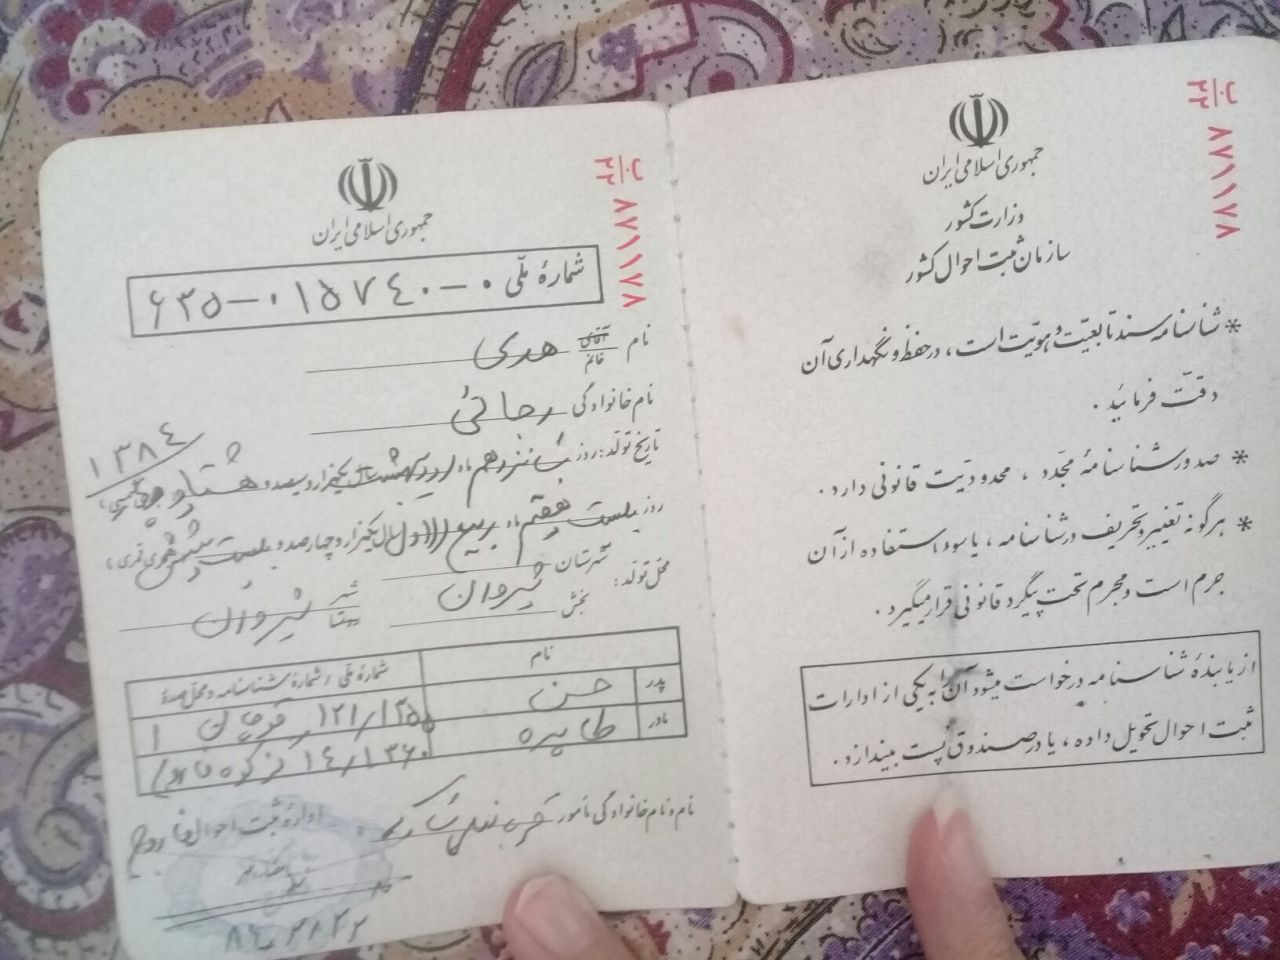 ۲۲/ل
۸۷۱۱۷۸
جمهوری اسلامی ایران
وزارت کشور
سازمان ثبت احوال کشور
* شناسنامه سند تابعیّت و هویّت است ، در حفظ و نگهداری آن
دقّت فرمائید .
* صدور شناسنامهٔ مجدّد ، محدودیّت قانونی دارد .
* هرگونه تغییر و تحریف در شناسنامه ، یا سوء استفاده از آن
جرم است و مجرم تحت پیگرد قانونی قرار میگیرد .
از یابندهٔ شناسنامه درخواست میشود آن را به یکی از ادارات
ثبت احوال تحویل داده ، یا در صندوق پُست بیندازد .
۸۷۱۱۷۸
جمهوری اسلامی ایران
شمارهٔ ملّی ۰-۰۱۵۷۴۰-۶۳۵
نام آقای خانم هدی
نام خانوادگی رجائی
۱۳۸۴
تاریخ تولّد: روز شانزدهم ماه اردیبهشت سال یکهزار و سیصد و هشتاد و چهار شمسی،
روز بیست هفتم ماه ربیع الاول سال یکهزار و چهارصد و بیست و شش هجری قمری،
محل تولّد: شهرستان شیروان بخش شهر روستا شیروان
نام شمارهٔ ملی / شمارهٔ شناسنامه و محل صدور
پدر حسن ۱۲۱/۱۳۵۵ قوچان ۱
مادر طاهره ۱۴/۱۳۶۰
نام و نام خانوادگی مأمور
ادارهٔ ثبت احوال